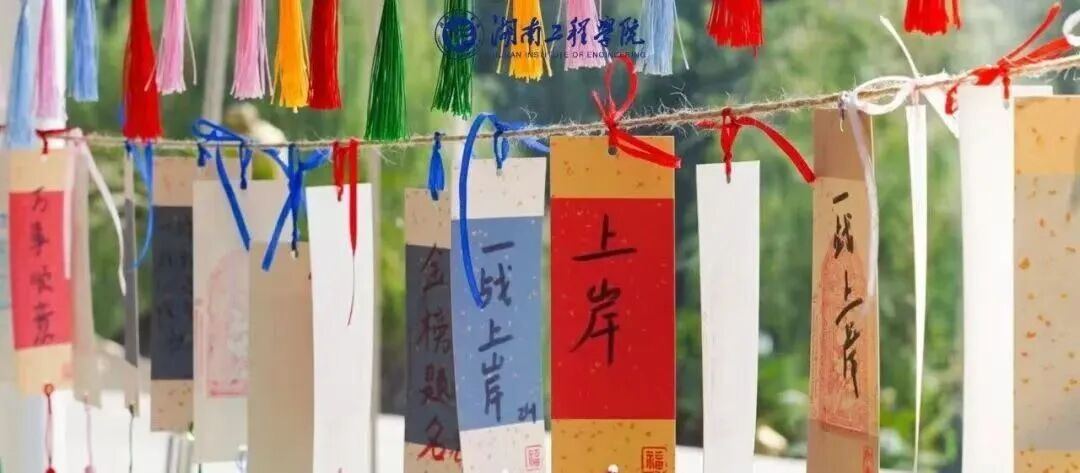 湖南工程學院
HUNAN INSTITUTE OF ENGINEERING
万事顺意
金榜题名
一战上岸
福
上岸
福
一战上岸